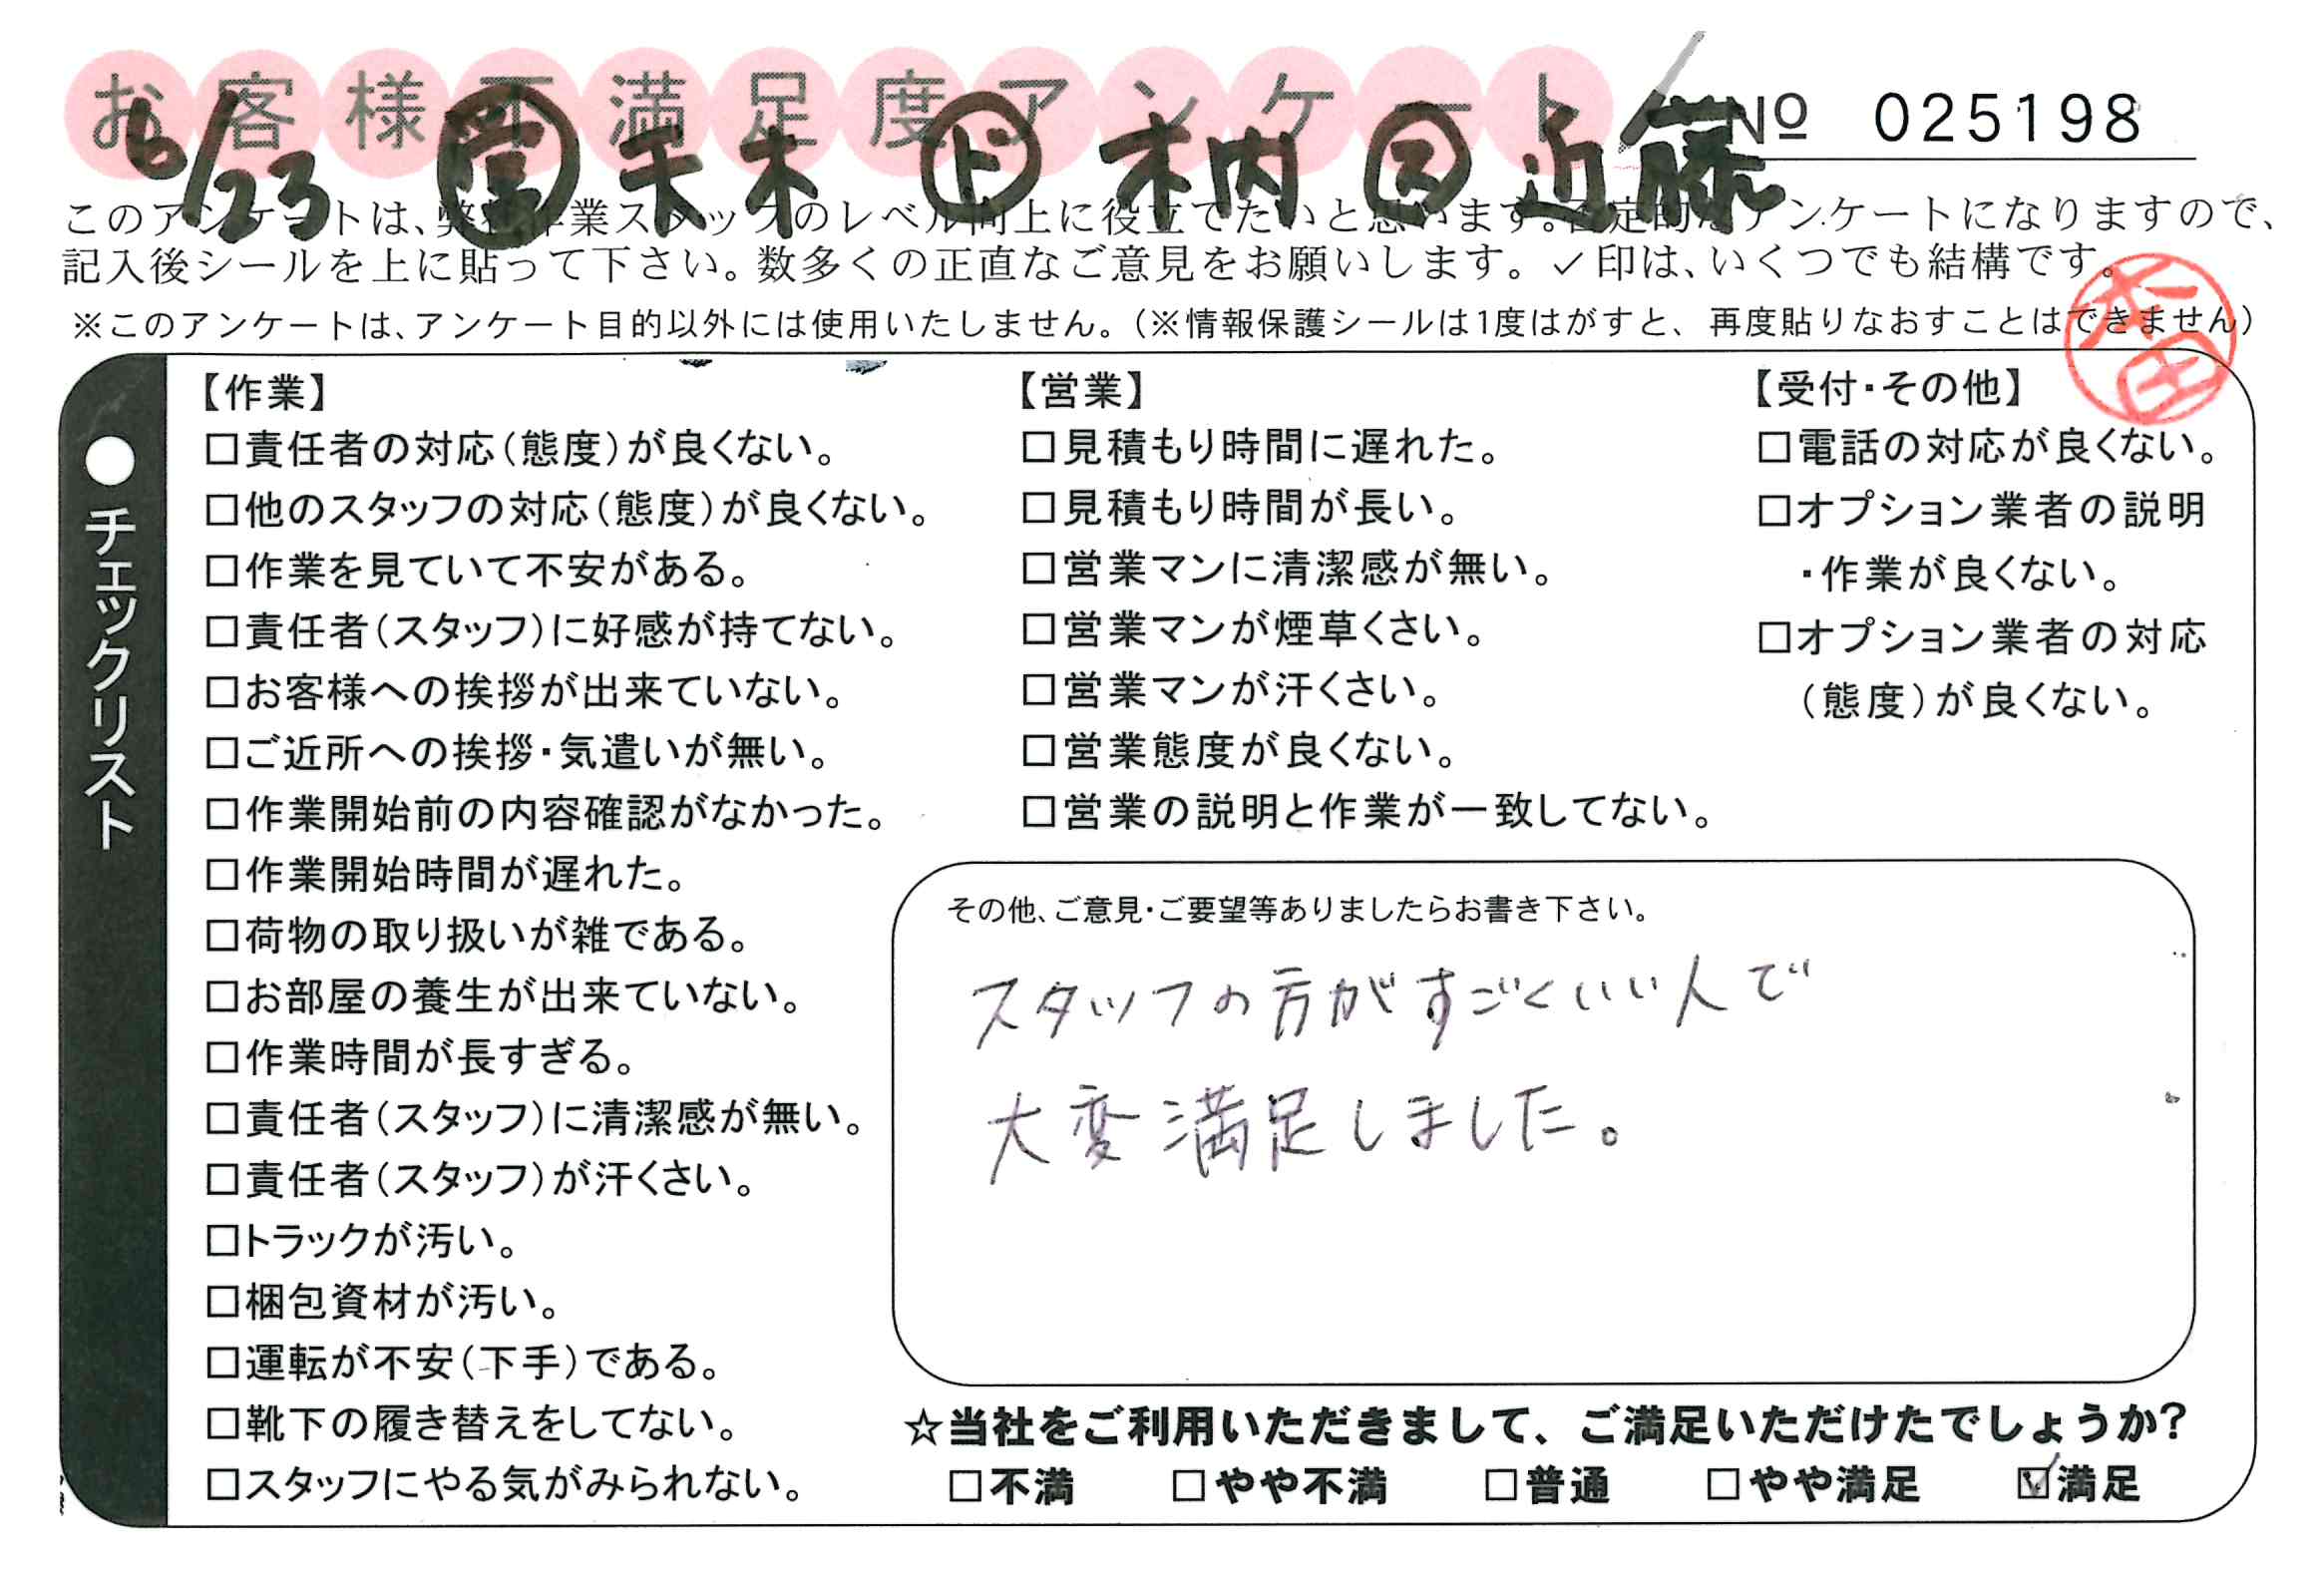 お客様不満足度アンケート
№ 025198
6/23 営 天木 ド 木内 又 近藤
このアンケートは、弊社作業スタッフのレベル向上に役立てたいと思います。否定的なアンケートになりますので、
記入後シールを上に貼って下さい。数多くの正直なご意見をお願いします。✓印は、いくつでも結構です。
※このアンケートは、アンケート目的以外には使用いたしません。(※情報保護シールは1度はがすと、再度貼りなおすことはできません)
本田
●チェックリスト
【作業】
□責任者の対応(態度)が良くない。
□他のスタッフの対応(態度)が良くない。
□作業を見ていて不安がある。
□責任者(スタッフ)に好感が持てない。
□お客様への挨拶が出来ていない。
□ご近所への挨拶・気遣いが無い。
□作業開始前の内容確認がなかった。
□作業開始時間が遅れた。
□荷物の取り扱いが雑である。
□お部屋の養生が出来ていない。
□作業時間が長すぎる。
□責任者(スタッフ)に清潔感が無い。
□責任者(スタッフ)が汗くさい。
□トラックが汚い。
□梱包資材が汚い。
□運転が不安(下手)である。
□靴下の履き替えをしてない。
□スタッフにやる気がみられない。
【営業】
□見積もり時間に遅れた。
□見積もり時間が長い。
□営業マンに清潔感が無い。
□営業マンが煙草くさい。
□営業マンが汗くさい。
□営業態度が良くない。
□営業の説明と作業が一致してない。
【受付・その他】
□電話の対応が良くない。
□オプション業者の説明
・作業が良くない。
□オプション業者の対応
(態度)が良くない。
その他、ご意見・ご要望等ありましたらお書き下さい。
スタッフの方がすごくいい人で
大変満足しました。
☆当社をご利用いただきまして、ご満足いただけたでしょうか?
□不満 □やや不満 □普通 □やや満足 ☑満足